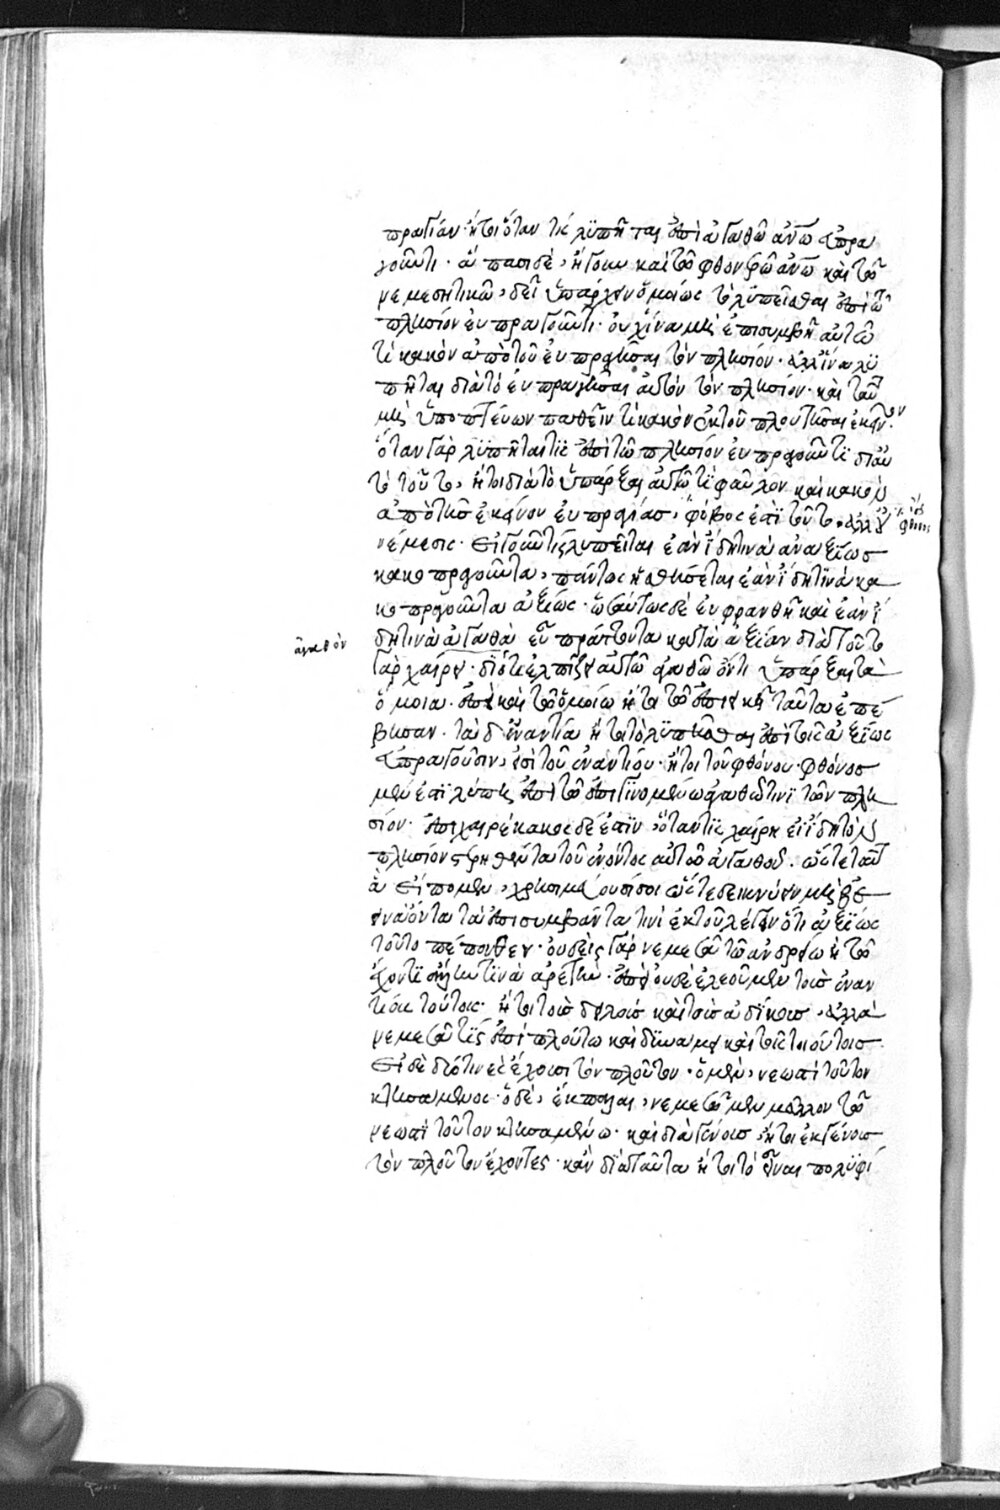 πραγίαν· ἤτοι ὅταν τις λυπῆται ἐπὶ ἀγαθῶ ἀνω εὐπρα
γοῦντι· ἅπασι δὲ, ἤγουν καὶ τῶ φθονερῶ ανω καὶ τῶ
νεμεσητικῶ, δεῖ ὑπάρχειν ὁμοίως τὸ λυπεῖσθαι ἐπὶ τῶ
πλησίον εὐπραγοῦντι· οὐχ ἵνα μὴ ἐπισυμβῆ αὐτῶ
τὶ κακὸν ἀπὸ τοῦ εὐπραγῆσαι τὸν πλησίον· ἀλλ' ἵνα λυ
πῆται διὰ τὸ εὐπραγῆσαι αὐτὸν τὸν πλησίον· καὶ ταῦ
μὴ ὑποπτεύων παθεῖν τὶ κακὸν ἐκ τοῦ πλουτῆσαι ἐκεῖνον·
ὅταν γὰρ λυπῆται τις ἐπὶ τῶ πλησίον εὐπραγοῦντι διὰ
τὸ τοῦτο, ἤτοι διὰ τὸ ὑπάρξαι αὐτῶ τὶ φαῦλον καὶ κακὸν
ἀπὸ τῆς ἐκείνου εὐπραγίας, φόβος ἐστὶ τοῦτο, ἀλλ' οὐ
νέμεσις· εἰ γοῦν τις λυπεῖται ἐὰν ἴδη τινὰ ἀναξίως
κακοπραγοῦντα, πάντως ἡσθήσεται ἐὰν ἴδη τινὰ κα
κοπραγοῦντα ἀξίως· ὡσαύτως δὲ εὐφρανθῆ καὶ ἐὰν ἴ
δη τινὰ ἀγαθὰ εὖ πράττοντα κατὰ ἀξίαν διὰ τοῦτο
ἀγαθὸν
γὰρ χαίρει· διότι ἐλπίζει αὐτῶ ἀγαθῶ ὄντι ὑπάρξαι τὰ
ὅμοια· ἐπεὶ καὶ τῶ ὁμοίω ἤτοι τῶ ἐπιεικεῖ ταῦτα ἐπέ
βησαν· τὰ δ' ἐναντία ἤτοι τὸ λυπεῖσθαι ἐπὶ τοῖς ἀξίως
εὐπραγοῦσιν, ἐστὶ τοῦ ἐναντίου· ἤτοι τοῦ φθόνου· φθόνος
μὲν ἐστὶ λύπης ἐπὶ τῶ ἐπιγινομένω ἀγαθῶ τινὶ τῶν πλη
σίον· ἐπιχαιρέκακος δέ ἐστιν, ὅταν τις χαίρη εἰ ἴδη τὸν
πλησίον στερηθέντα τοῦ ἐνόντος αὐτῶ ἀγαθοῦ· ὥστε ταῦτ
ἃ εἴπομεν, χρήσιμα οὖσί σοι ὥστε δεικνύειν μὴ ἐλε
εινὰ ὄντα τὰ ἐπισυμβάντα τινὶ ἐκ τοῦ λέγειν ὅτι ἀξίως
τοῦτο πέπονθεν· οὐδεὶς γὰρ νεμεσᾶ τῶ ἀνδρείω ἢ τῶ
ἔχοντι ἄλλην τινὰ ἀρετὴν· ἐπεὶ οὐδὲ ἐλεοῦμεν τοῖς ἐναν
τίοις τούτοις· ἤτοι τοῖς δειλοῖς καὶ τοῖς ἀδίκοις, ἀλλὰ
νεμεσᾶ τις ἐπὶ πλούτω καὶ δυνάμει καὶ τοῖς τοιούτοις·
εἰ δὲ διό τινες ἔχουσι τὸν πλοῦτον· ὁ μὲν, νεωστὶ τοῦτον
κτησάμενος· ὁ δὲ, ἔκπαλαι, νεμεσῶ μὲν μᾶλλον τῶ
νεωστὶ τοῦτον κτησαμένω· καὶ διὰ γένους, ἤτοι ἐκ γένους
τὸν πλοῦτον ἔχοντες· κἂν διὰ ταῦτα ἤτοι τὸ εἶναι πολυφί